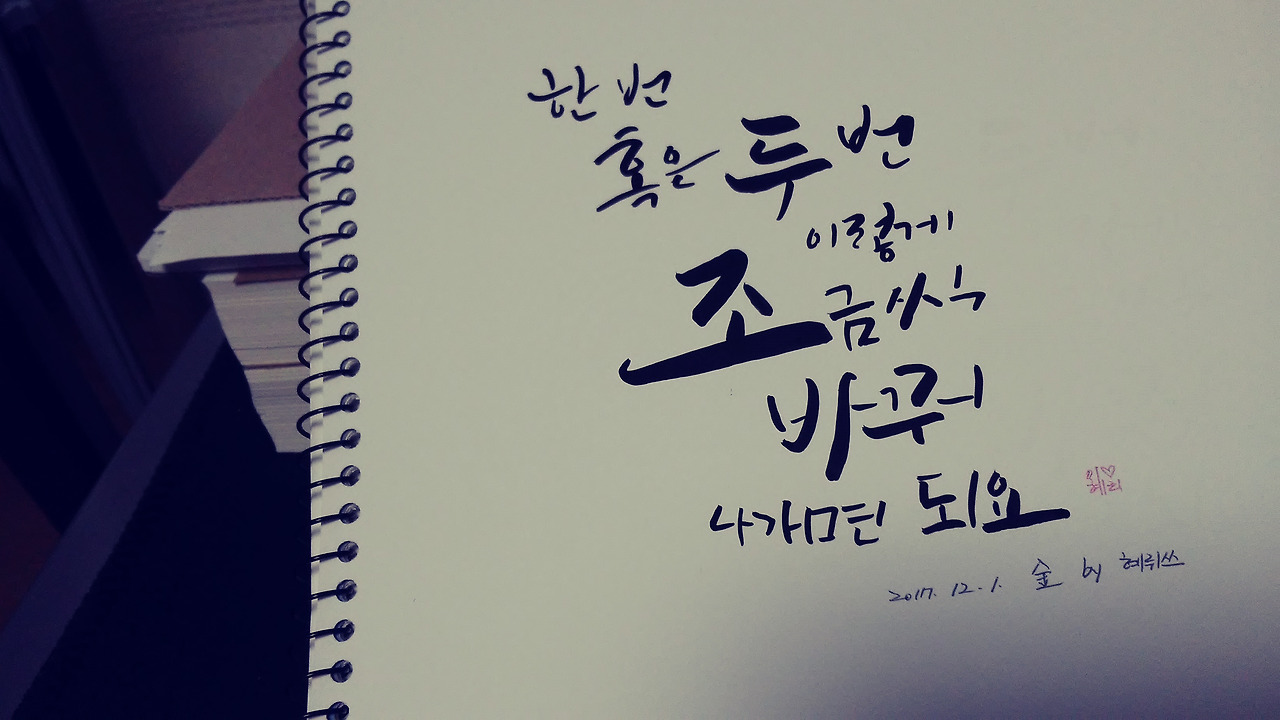 한 번
혹은 두 번
이렇게
조금씩
바꿔
나가면 되요
이♡
혜리
2017. 12. 1. 金 by 혜뤼쓰